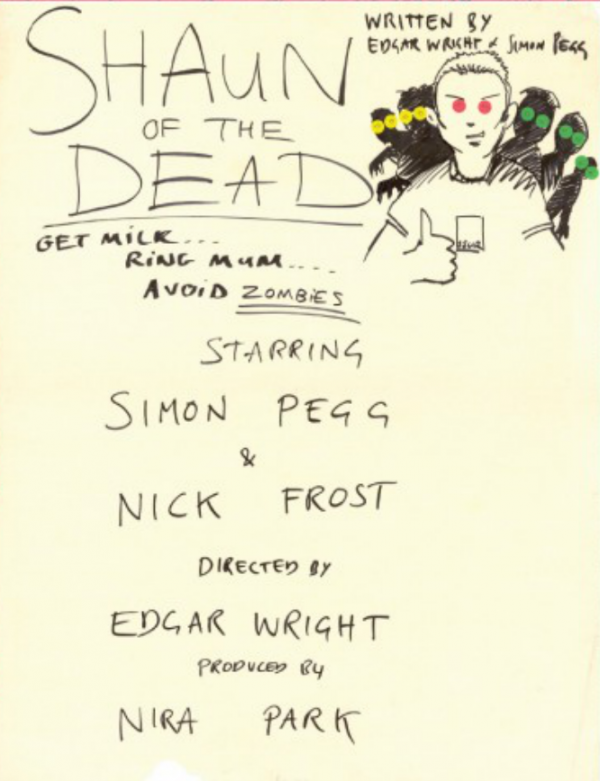 SHAUN
OF THE
DEAD
WRITTEN BY
EDGAR WRIGHT & SIMON PEGG
GET MILK...
RING MUM....
AVOID ZOMBIES
STARRING
SIMON PEGG
&
NICK FROST
DIRECTED BY
EDGAR WRIGHT
PRODUCED BY
NIRA PARK